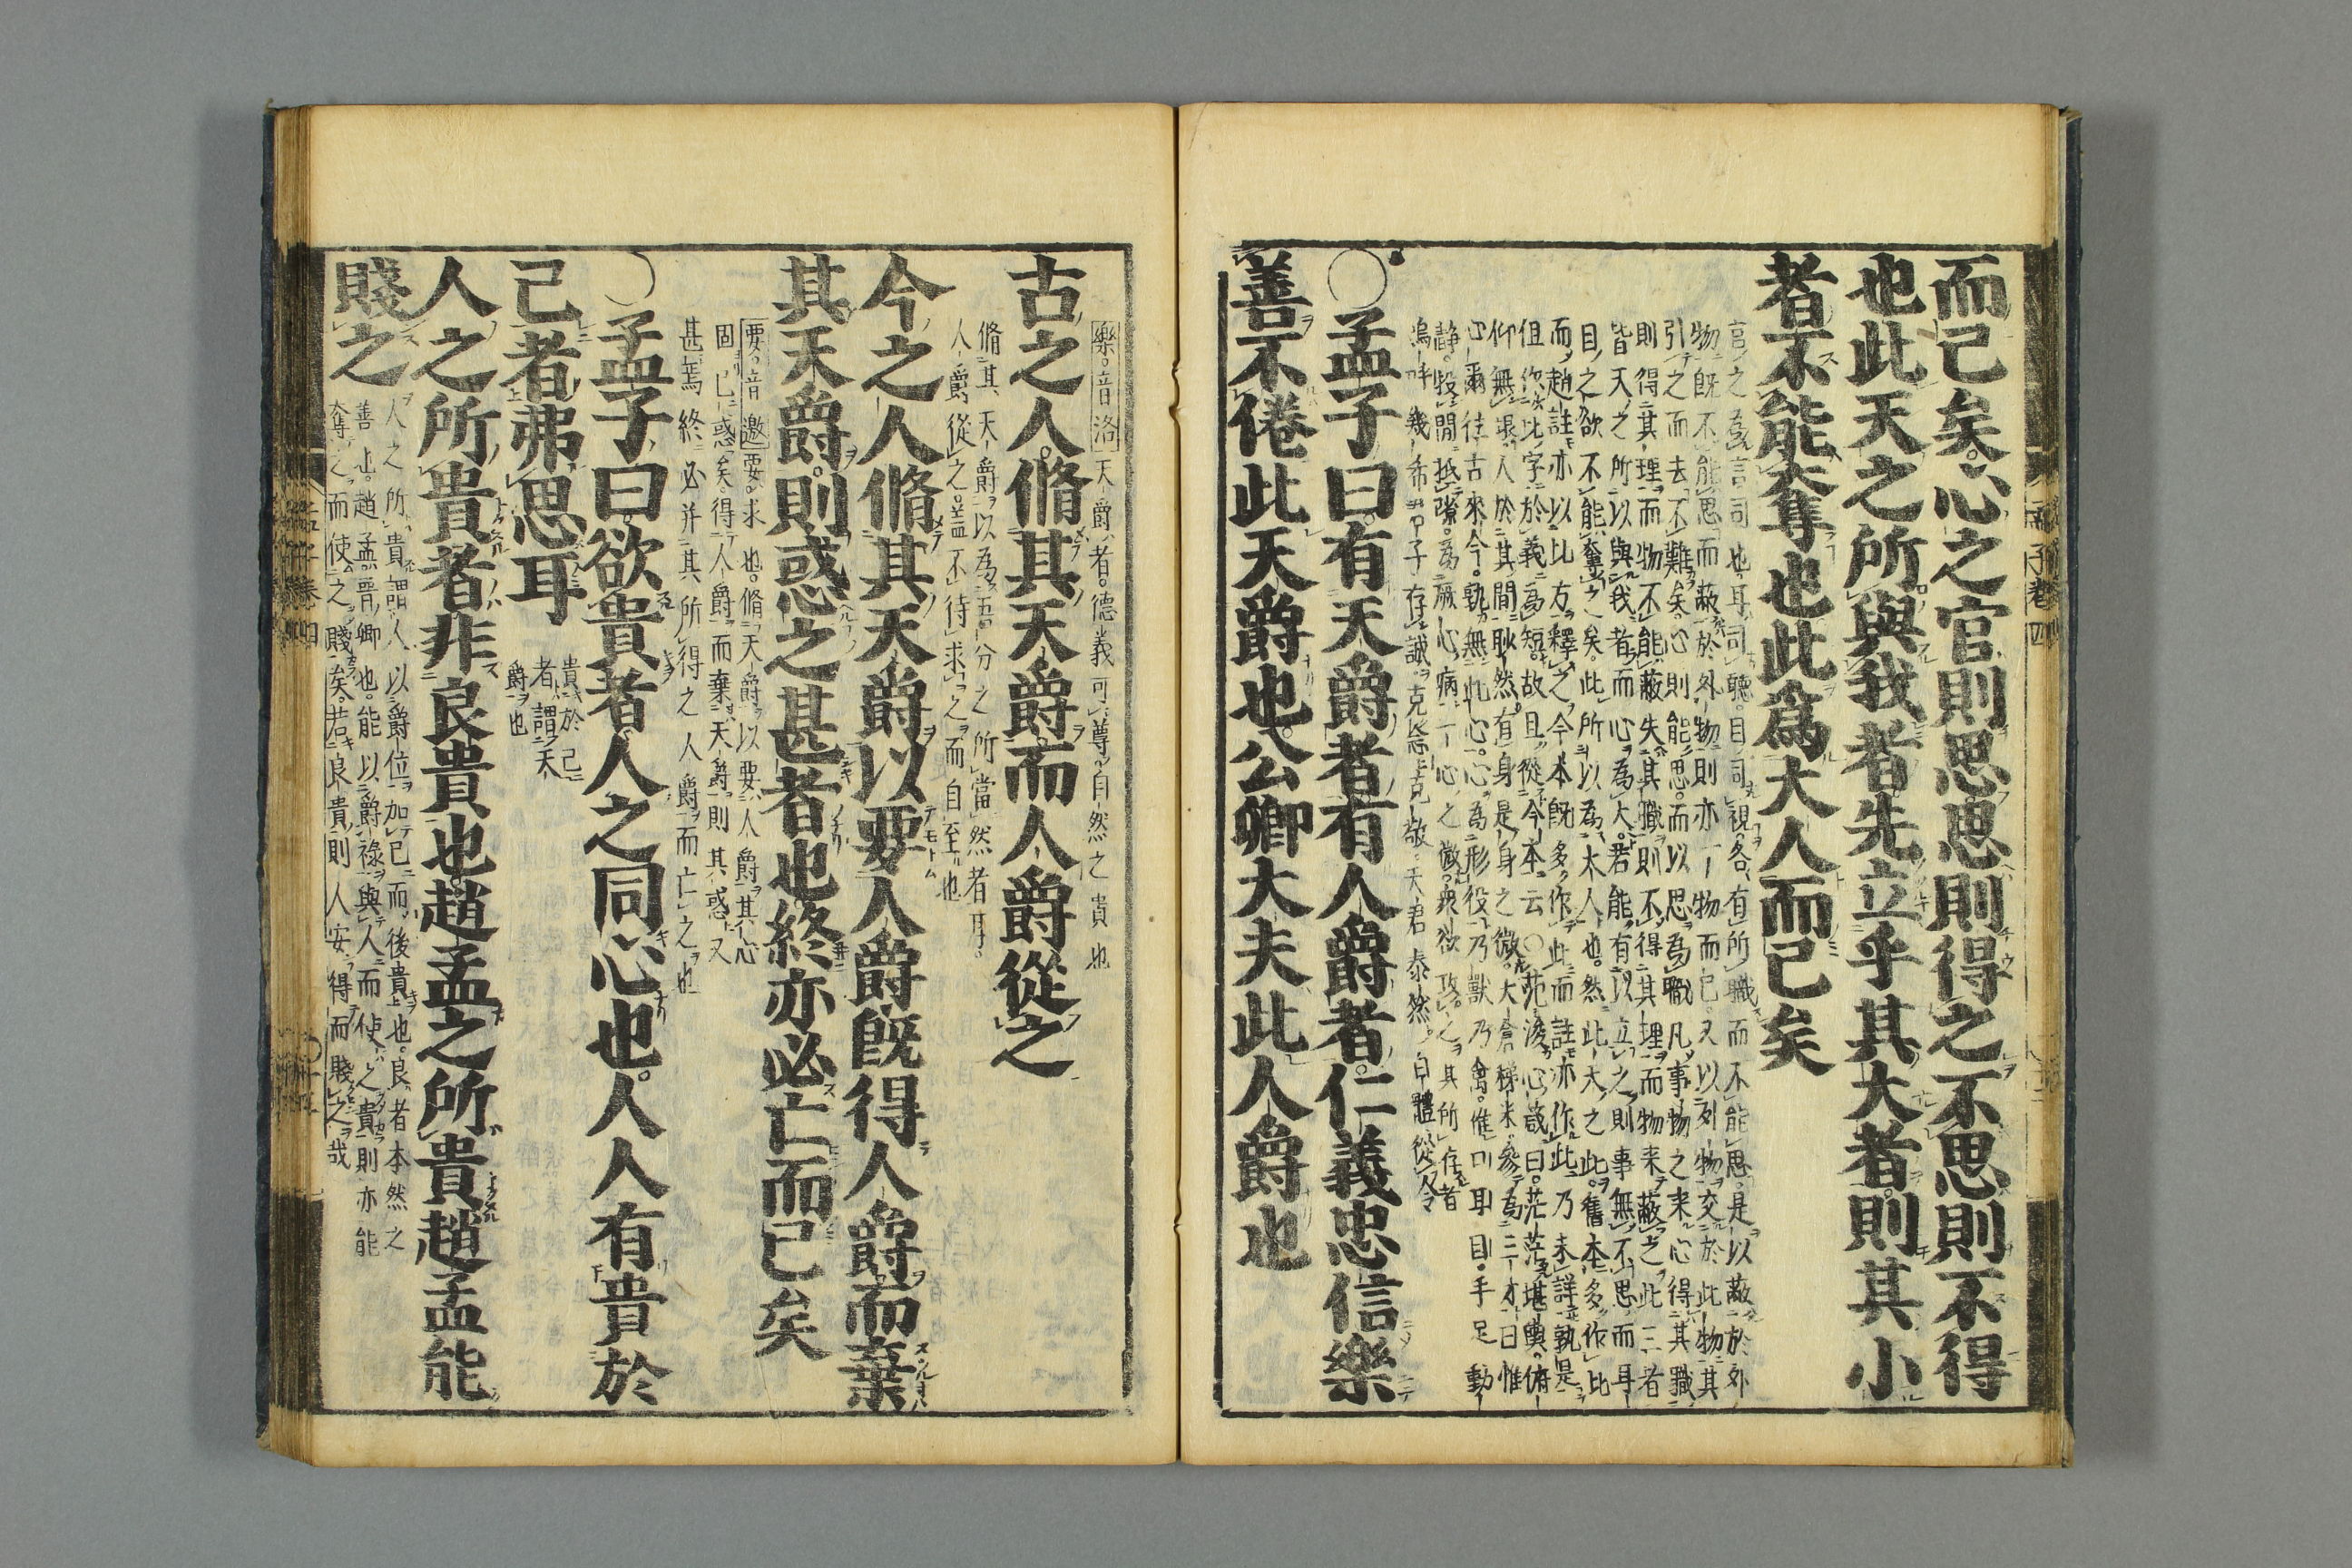 而已矣心之官則思思則得之不思則不得
也此天之所與我者先立乎其大者則其小
者不能奪也此爲大人而已矣
官之爲言司也耳司聽目司視各有所職而不能思是以蔽於外
物既不能思而蔽於外物則亦一物而已又以外物交於此物其
引之而去不難矣心則能思而以思爲職凡事物之來心得其職
則得其理而物不能蔽失其職則不得其理而物來蔽之此三者
皆天之所以與我者而心爲大若能有以立之則事無不思而耳
目之欲不能奪之矣此所以爲大人也然此天之此舊本多作比
而趙註亦以比方釋之今本既多作此而註亦作此乃未詳孰是
但作比字於義爲短故且從今本云○范浚心箴曰茫茫堪輿俯
仰無垠人於其間眇然有身是身之微大倉稊米參爲三才曰惟
心爾往古來今孰無此心心爲形役乃獸乃禽惟口耳目手足動
靜投閒抵隙爲厥心病一心之微衆欲攻之其所存者
嗚呼幾希君子存誠克念克敬天君泰然百體從令
○孟子曰有天爵者有人爵者仁義忠信樂
善不倦此天爵也公卿大夫此人爵也
樂音洛天爵者德義可尊自然之貴也
古之人脩其天爵而人爵從之
脩其天爵以爲吾分之所當然者耳
人爵從之蓋不待求之而自至也
今之人脩其天爵以要人爵既得人爵而棄
其天爵則惑之甚者也終亦必亡而已矣
要音邀要求也脩天爵以要人爵其心
固已惑矣得人爵而棄天爵則其惑又
甚焉終必并其所得之人爵而亡之也
○孟子曰欲貴者人之同心也人人有貴於
己者弗思耳
貴於己
者謂天
爵也
人之所貴者非良貴也趙孟之所貴趙孟能
賤之
人之所貴謂人以爵位加己而後貴也良者本然之
善也趙孟晉卿也能以爵祿與人而使之貴則亦能
奪之而使之賤矣若良貴則人安得而賤之哉
孟子卷四